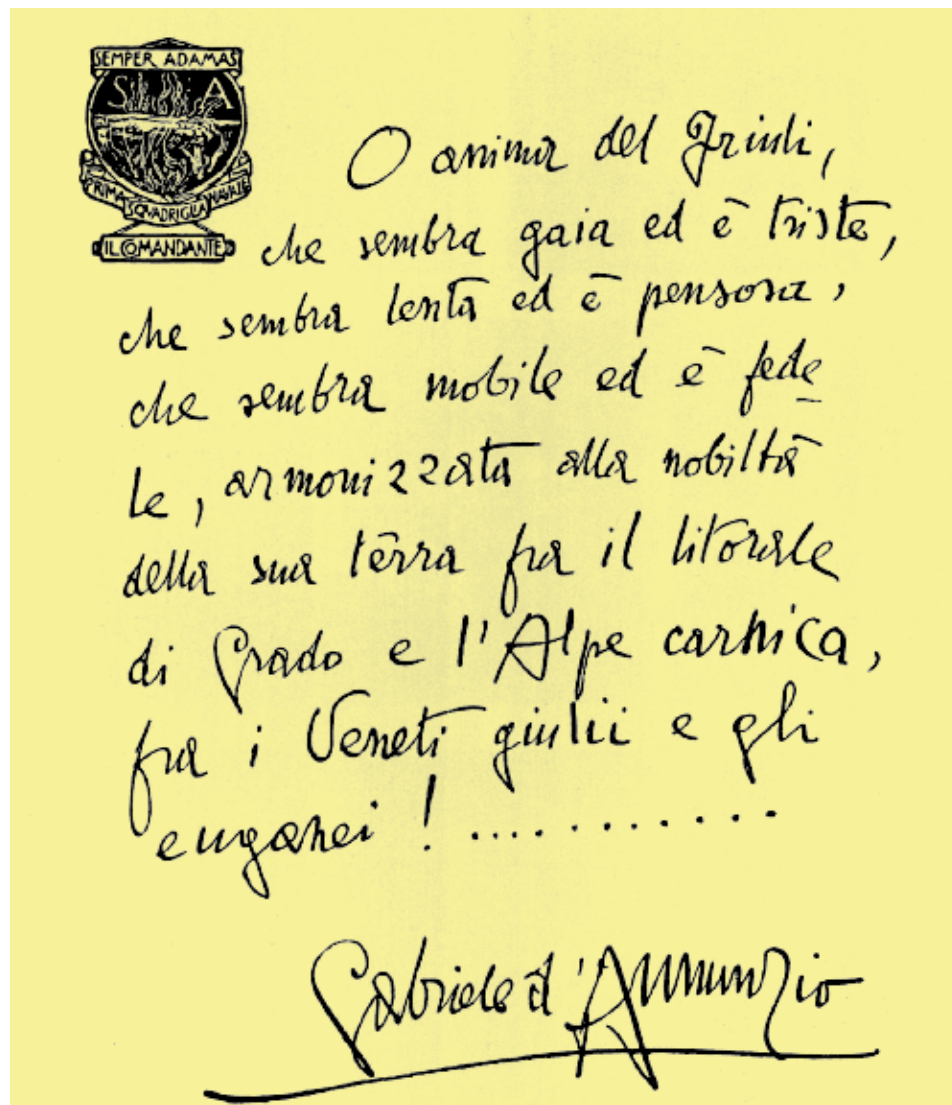 SEMPER ADAMAS
S A
PRIMA SQUADRIGLIA NAVALE
IL COMANDANTE
O anima del Friuli,
che sembra gaia ed è triste,
che sembra lenta ed è pensosa,
che sembra mobile ed è fede
le, armonizzata alla nobiltà
della sua terra fra il litorale
di Grado e l'Alpe carnica,
fra i Veneti giulii e gli
euganei ! ...........
Gabriele d'Annunzio